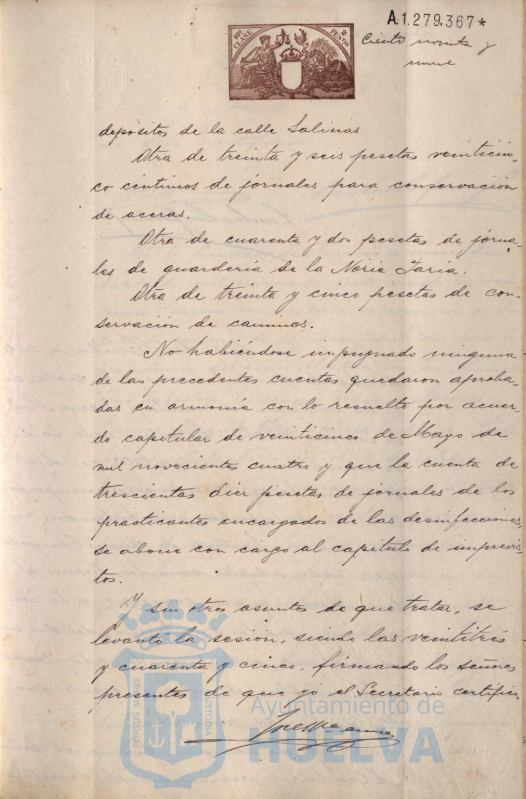 A.1.279,367*
10ª CLASE
2 PESTAS
Ciento noventa y
nueve
depósitos de la calle Salinas
Otra de treinta y seis pesetas veinticin-
co céntimos de jornales para conservación
de aceras.
Otra de cuarenta y dos pesetas de jorna-
les de guardería de la Noria
Otra de treinta y cinco pesetas de con-
servación de caminos.
No habiéndose impugnado ninguna
de las precedentes cuentas quedaron aproba-
das en armonía con lo resuelto por acuer-
do capitular de veinticinco de Mayo de
mil novecientos cuatro y que la cuenta de
trescientas diez pesetas de jornales de los
practicantes encargados de las desinfecciones,
se abone con cargo al capítulo de imprevis-
tos.
Y sin otros asuntos de que tratar, se
levantó la sesión, siendo las veintitrés
y cuarenta y cinco, firmando los señores
presentes de que yo el Secretario certifico.
PORTUS MARIS
CUSTODIA
Ayuntamiento de
HUELVA